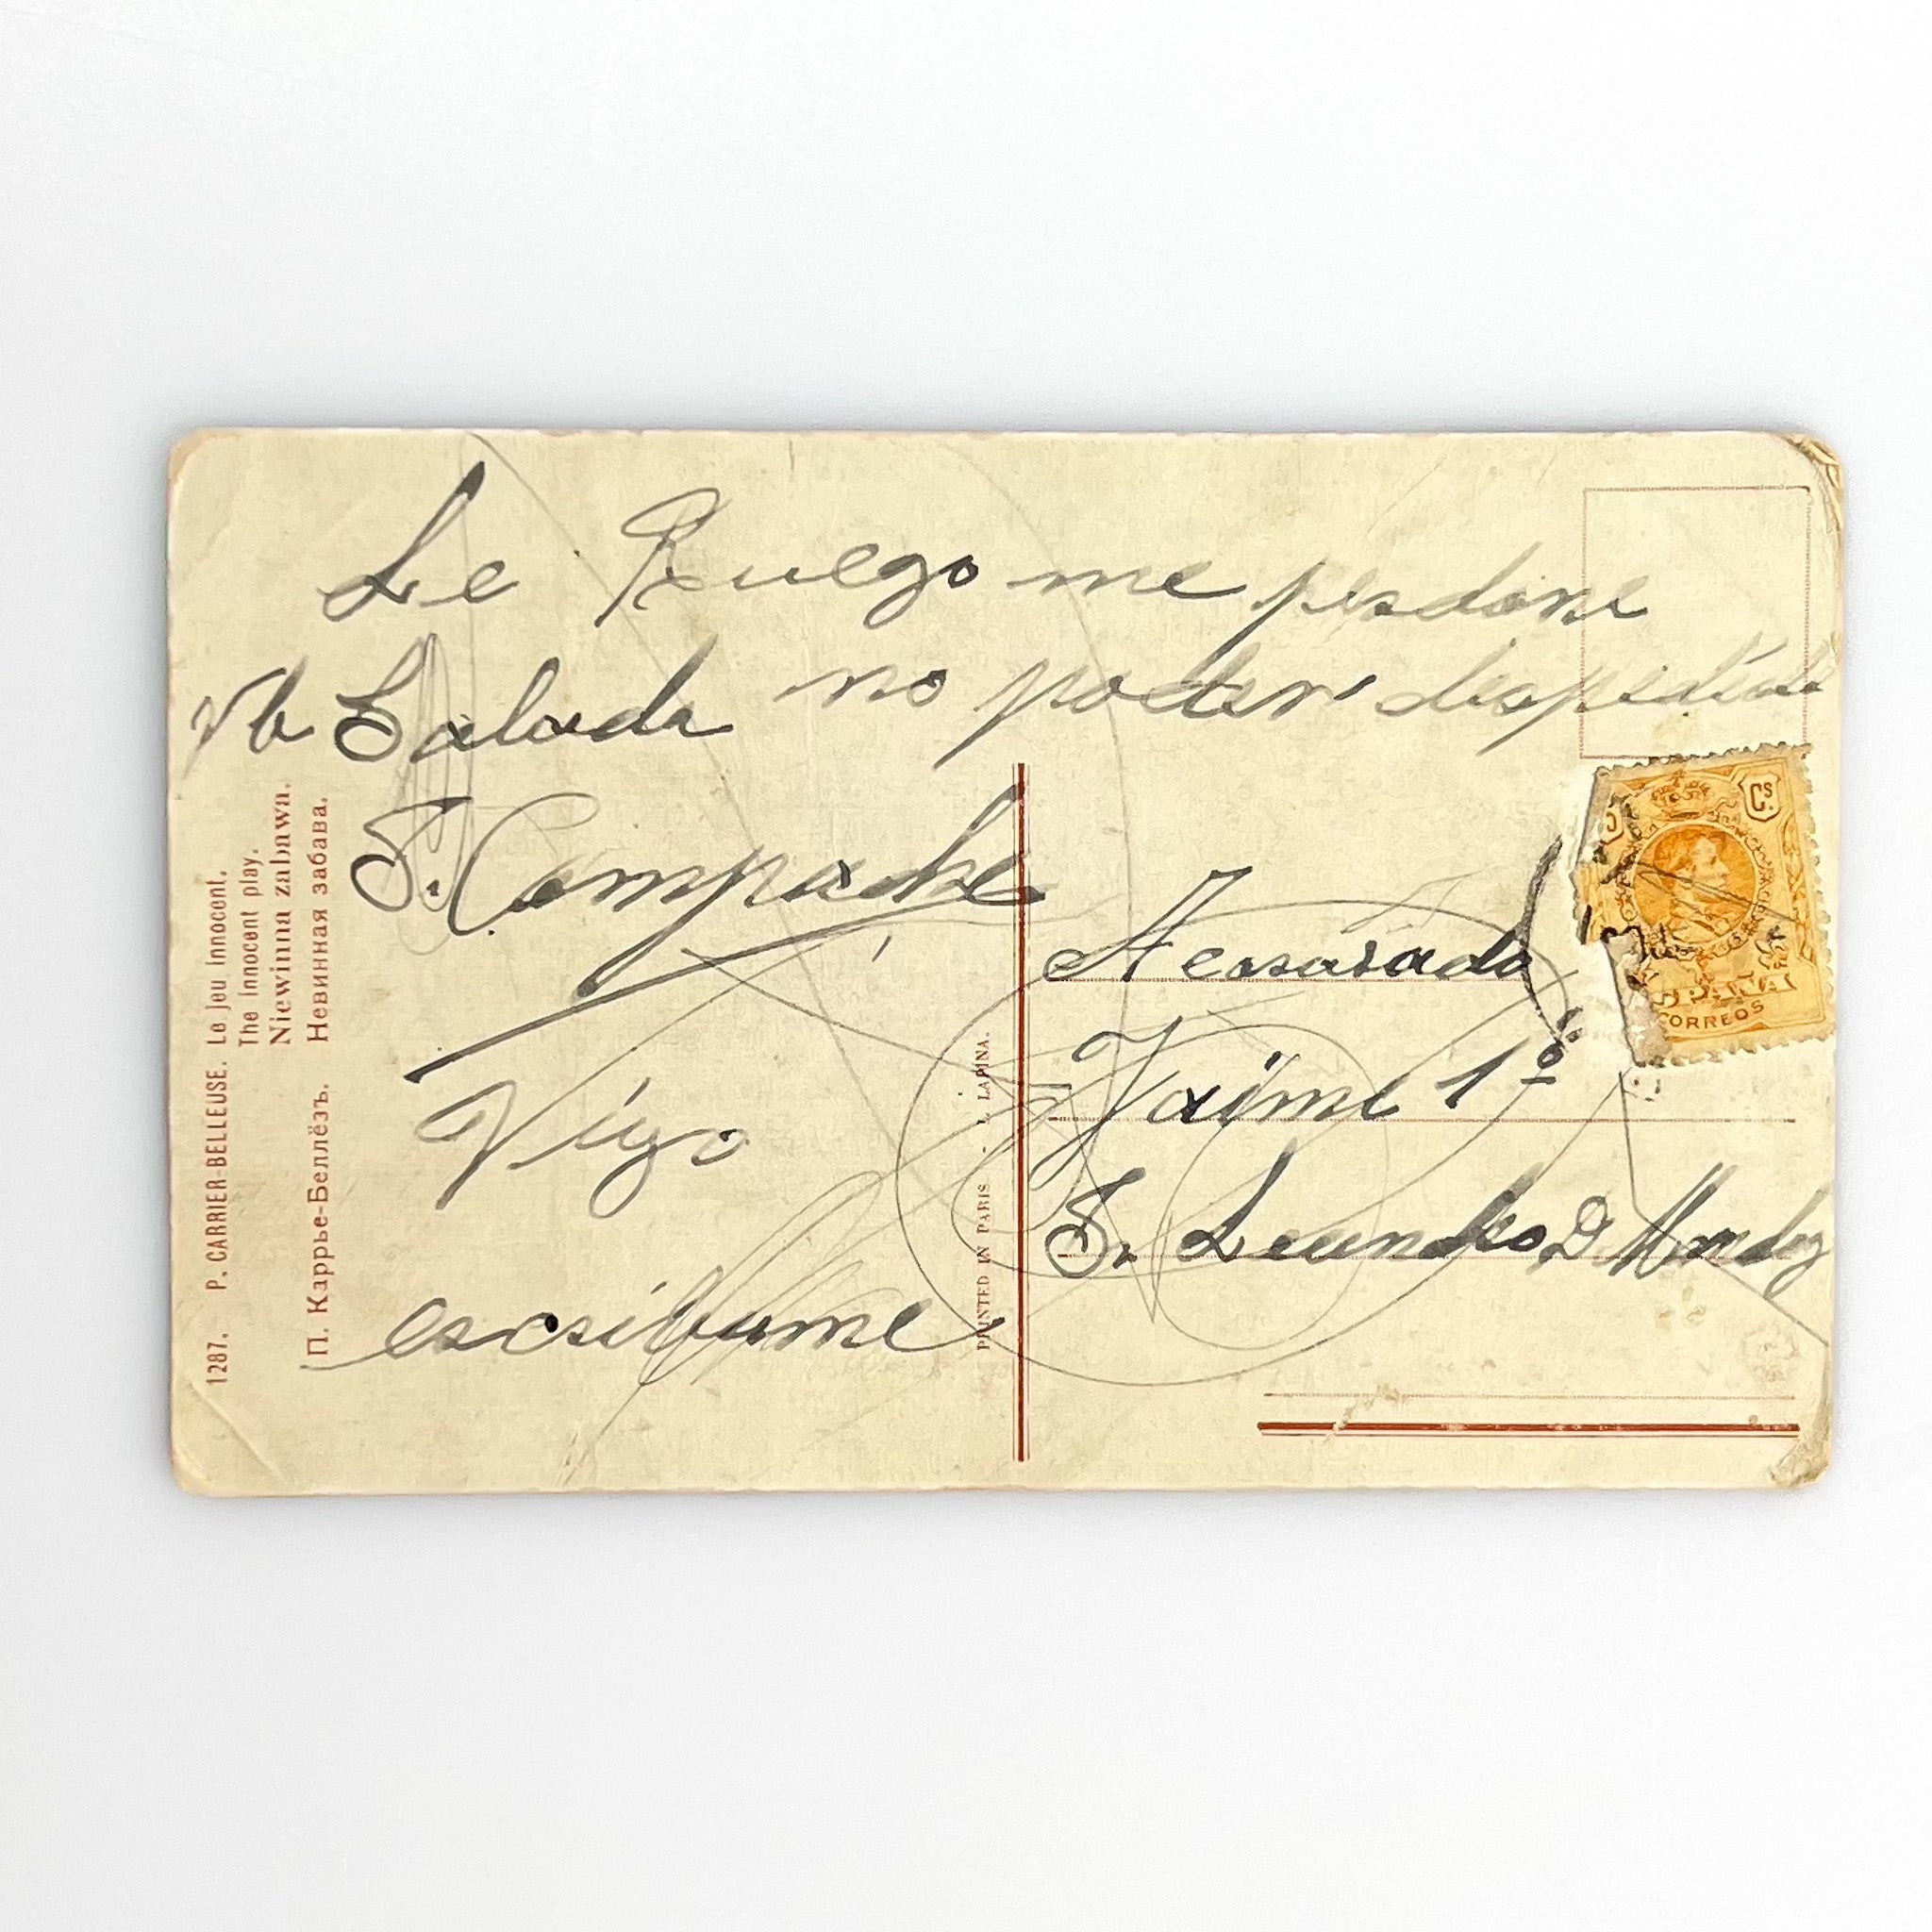 Le Ruego me perdone
no poder despedirse
Vb Saluda
S. Campache
Vigo
escribame
Acorasado
Jaime 1º
Sr Leandro D
Cs
ESPAÑA
CORREOS
1287. P. CARRIER-BELLEUSE. Le jeu innocent.
The innocent play.
Niewinna zabawa.
П. Каррье-Беллёзъ. Невинная забава.
PRINTED IN PARIS - I. LAPINA.